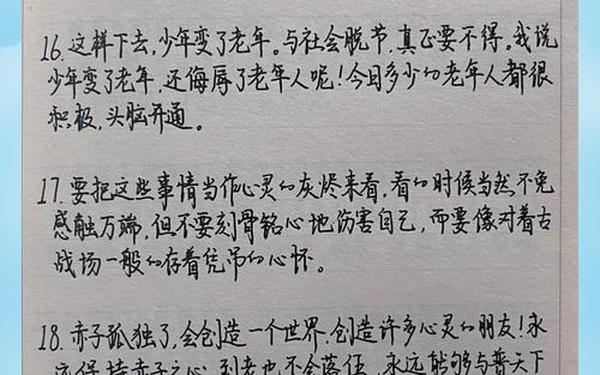 16.这样下去,少年变了老年。与社会脱节,真正要不得。我说
少年变了老年,还侮辱了老年人呢!今日多少的老年人都很
积极,头脑开通。
17.要把这些事情当作心灵的灰烬来看,看的时候当然不免
感触万端,但不要刻骨铭心地伤害自己,而要像对着古
战场一般的存着凭吊的心怀。
18.赤子孤独了,会创造一个世界,创造许多心灵的朋友!永
远保持赤子之心,到老也不会落伍,永远能够与普天下